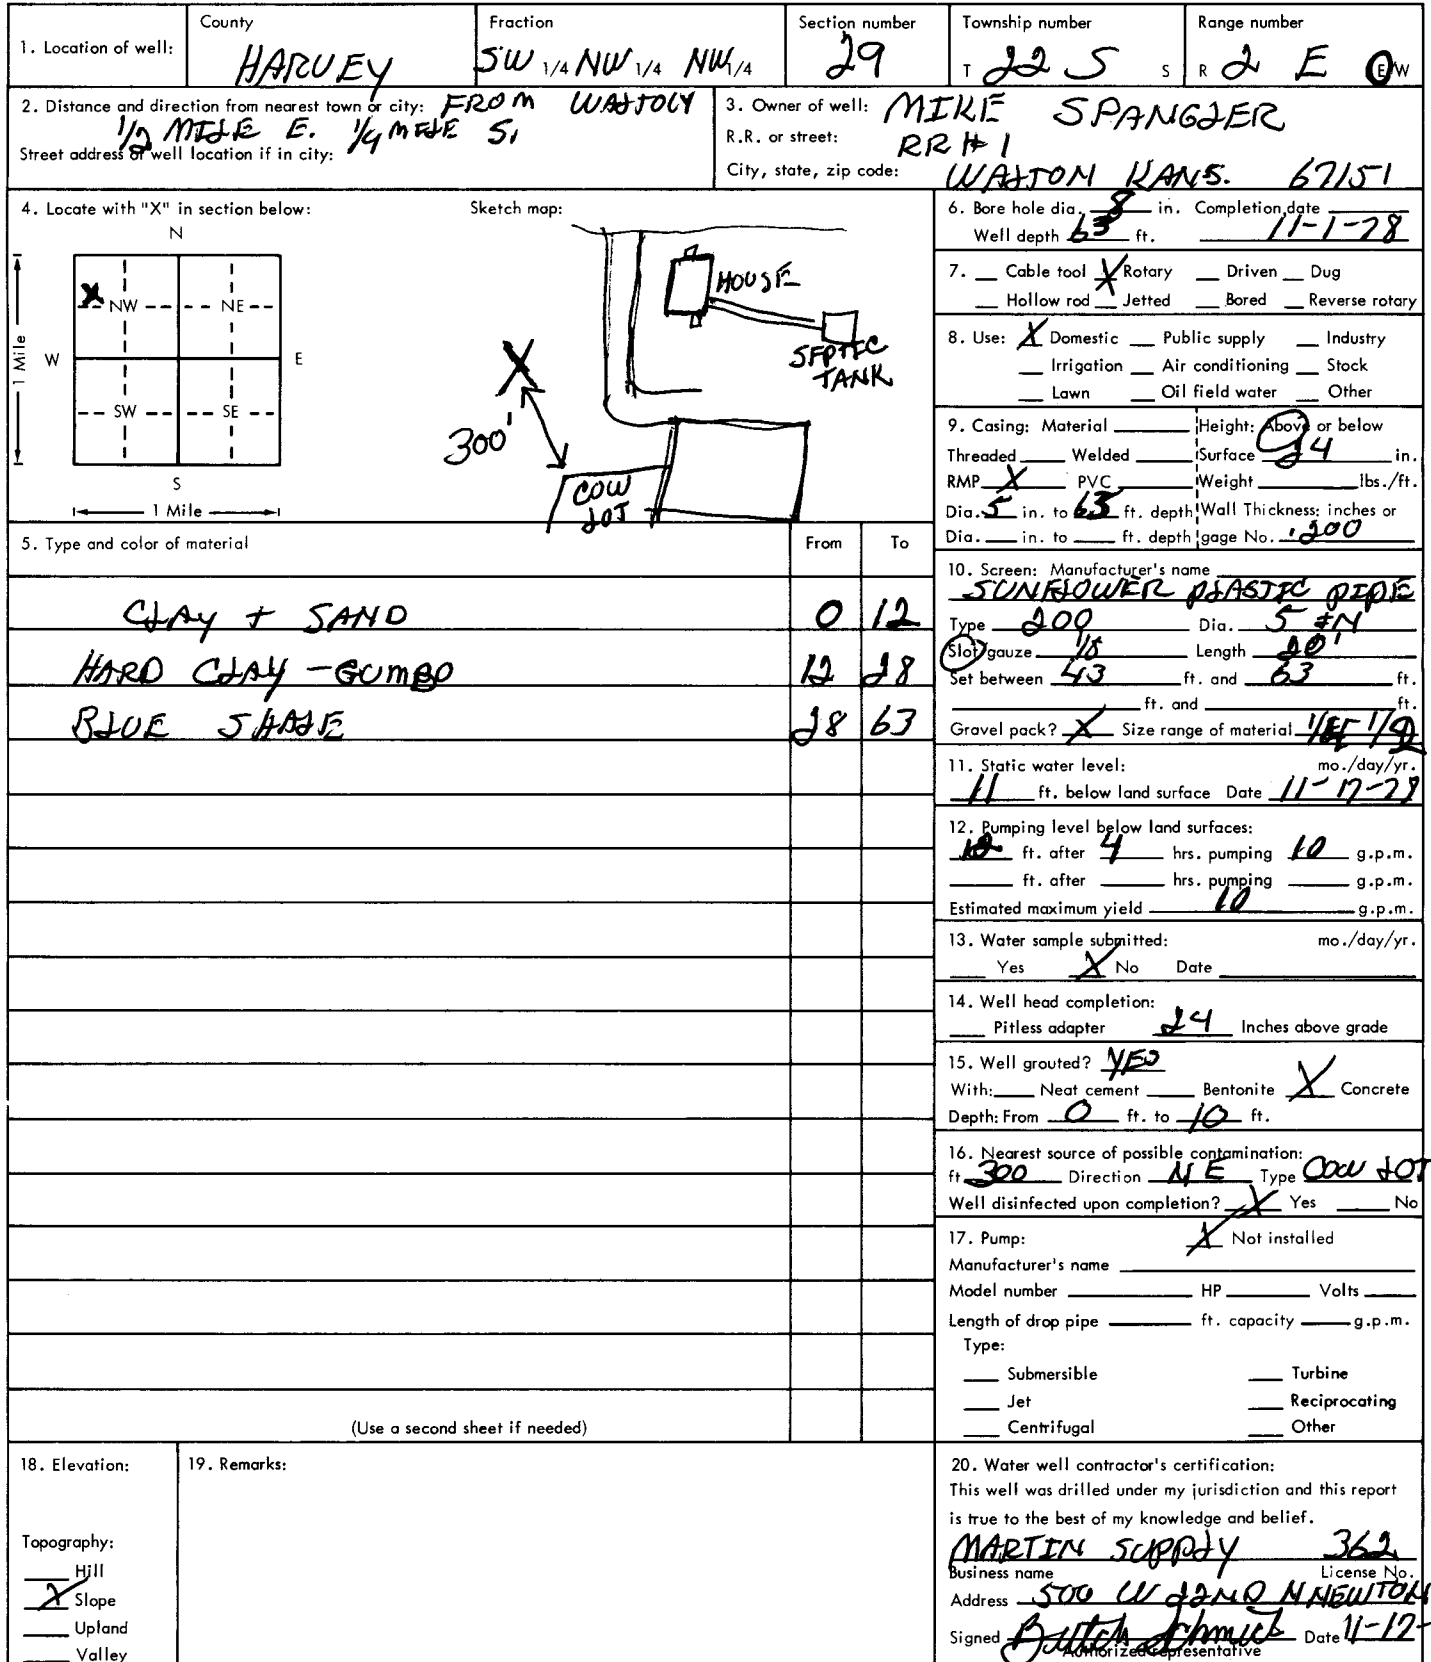 1. Location of well: County HARVEY Fraction SW 1/4 NW 1/4 NW 1/4 Section number 29 Township number T 22 S S Range number R 2 E E/W
2. Distance and direction from nearest town or city: FROM
1/2 MILE E. 1/4 MILE S.
Street address of well location if in city:
3. Owner of well: MIKE SPANGLER
R.R. or street: RR #1
City, state, zip code: WALTON KANS. 67151
4. Locate with "X" in section below:
N
X
NW NE
W E
SW SE
S
1 Mile
1 Mile
Sketch map:
HOUSE
SEPTIC
TANK
X
300'
COW
LOT
5. Type and color of material From To
CLAY + SAND 0 12
HARD CLAY - GUMBO 12 28
BLUE SHALE 28 63
(Use a second sheet if needed)
6. Bore hole dia. 8 in. Completion date
Well depth 63 ft. 11-1-78
7. Cable tool X Rotary Driven Dug
Hollow rod Jetted Bored Reverse rotary
8. Use: X Domestic Public supply Industry
Irrigation Air conditioning Stock
Lawn Oil field water Other
9. Casing: Material Height: Above or below
Threaded Welded Surface 24 in.
RMP X PVC Weight lbs./ft.
Dia. 5 in. to 63 ft. depth Wall Thickness: inches or
Dia. in. to ft. depth gage No. .200
10. Screen: Manufacturer's name
SUNFLOWER PLASTIC PIPE
Type 200 Dia. 5 IN
Slot/gauze Length 20'
Set between 43 ft. and 63 ft.
ft. and ft.
Gravel pack? X Size range of material
11. Static water level: mo./day/yr.
11 ft. below land surface Date 11-17-78
12. Pumping level below land surfaces:
ft. after 4 hrs. pumping 10 g.p.m.
ft. after hrs. pumping g.p.m.
Estimated maximum yield 10 g.p.m.
13. Water sample submitted: mo./day/yr.
Yes X No Date
14. Well head completion:
Pitless adapter 24 Inches above grade
15. Well grouted? YES
With: Neat cement Bentonite X Concrete
Depth: From 0 ft. to 10 ft.
16. Nearest source of possible contamination:
ft. 300 Direction NE Type COW LOT
Well disinfected upon completion? X Yes No
17. Pump: X Not installed
Manufacturer's name
Model number HP Volts
Length of drop pipe ft. capacity g.p.m.
Type:
Submersible Turbine
Jet Reciprocating
Centrifugal Other
18. Elevation:
Topography:
Hill
X Slope
Upland
Valley
19. Remarks:
20. Water well contractor's certification:
This well was drilled under my jurisdiction and this report
is true to the best of my knowledge and belief.
MARTIN SUPPLY 362
Business name License No.
Address 500 W 22ND N NEWTON
Signed Butch Schmidt Date 11-17-
Authorized representative